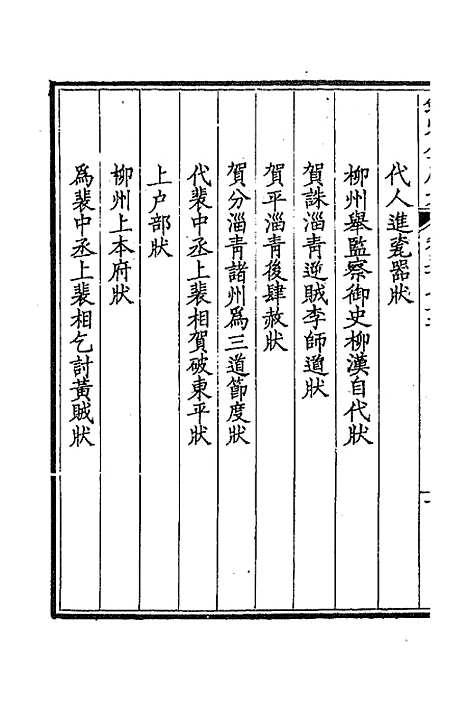 代人進甆器狀
柳州舉監察御史柳漢自代狀
賀誅淄青逆賊李師道狀
賀平淄青後肆赦狀
賀分淄青諸州爲三道節度狀
代裴中丞上裴相賀破東平狀
上户部狀
柳州上本府狀
爲裴中丞上裴相乞討黃賊狀